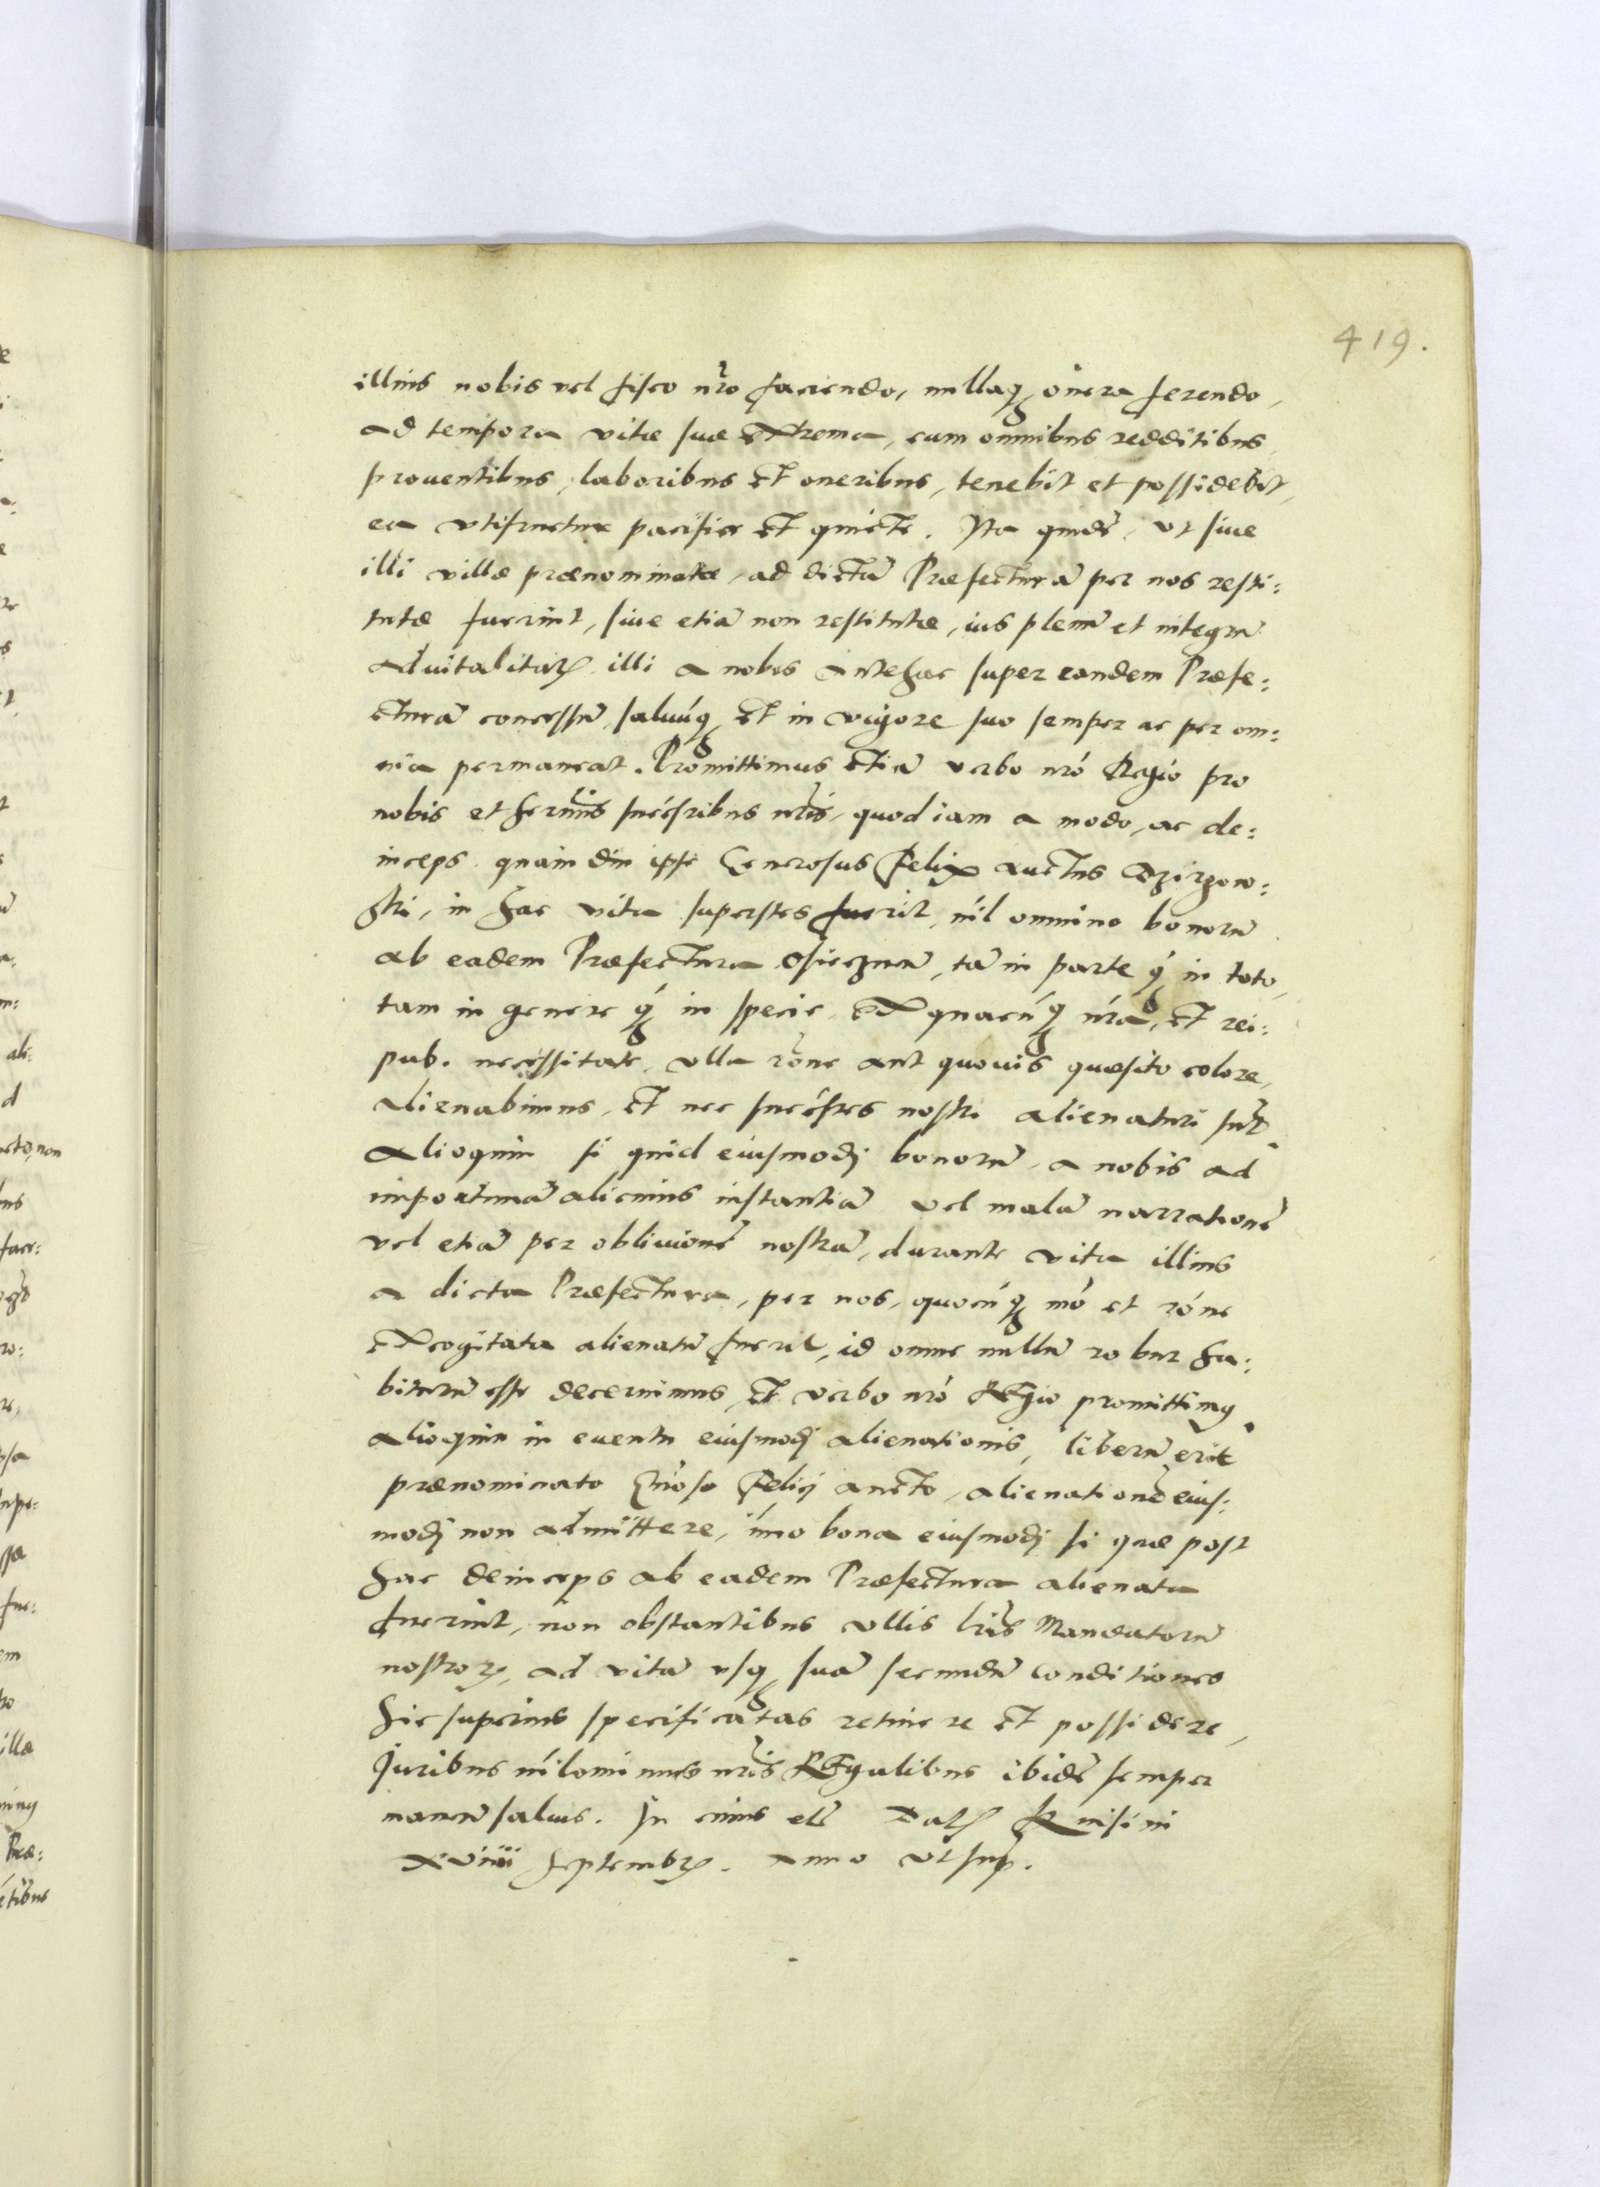 419.
illius nobis vel fisco nro faciendo, nullaq onera ferendo,
ad tempora vitæ suæ extrema, cum omnibus redditibus,
prouentibus, laboribus et oneribus, tenebit et possidebit,
ea vtifructur pacifice et quiete. Ita quidē, vt siue
illi villæ prænominatæ, ad dictā Præfecturā per nos resti:
tutæ fuerint, siue etiā non restitutæ, ius plenū et integrū
aduitalitatis illi a nobis antehac super eandem Præfe:
cturā concessū, saluūq et in vigore suo semper ac per om:
nia permaneat. Promittimus etiā verbo nro Regio pro
nobis et sernīs succēsribus nrīs, quod iam a modo, ac de:
inceps quam diu ipse Generosus Felix auctus Dzirzgow:
ski, in hac vita superstes fuerit, nīl omnino bonorū
ab eadem Præfectura Osieczneñ, tā in parte q̄ in toto,
tam in genere q̄ in specie, ex quacūq nrā, et rei:
pub. necessitate, vlla rōne aut quouis quæsito colore,
alienabimus, et nec succēsres nostri alienaturi sūt.
Alioquin si quid eiusmodj bonorū, a nobis ad
importunā alicuius instantiā vel malā narrationē
vel etiā per obliuionē nostrā, durante vita illius
a dicta Præfectura, per nos, quocūq mō et rōne
excogitata alienatū fuerit, id omne nullū robur ha:
biturū esse decernimus, et verbo nro Regio promittimq.
alioquin in euentu eiusmodj alienationis, liberū erit
prænominato Gñoso Felicj aucto, alienationē eius:
modj non admittere, īmo bona eiusmodj si quæ post
hac deinceps ab eadem Præfectura alienata
fuerint, non obstantibus vllis lrīs Mandatorū
nostror, ad vitā vsq suā secundū conditiones
hic superius specificatas retinere et possidere,
Juribus nīlominus nrīs Regalibus ibidē semper
maneñ saluis. In cuius etc Dat Knisini
xviiii septembr. anno vt sup.